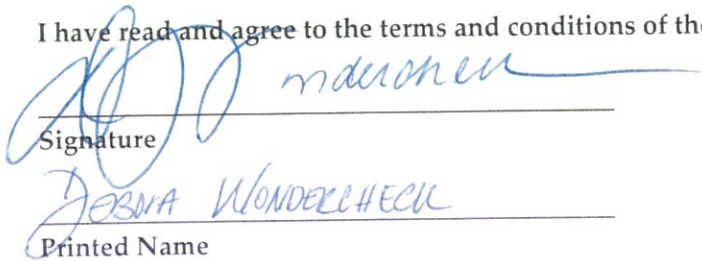 I have read and agree to the terms and conditions of the
Signature
DEBNA WONDERCHECK
Printed Name